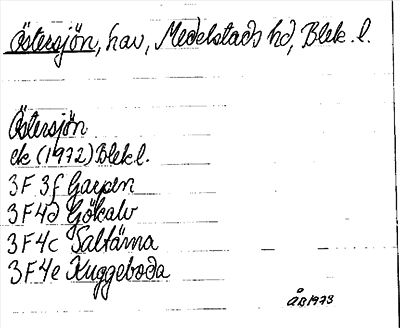 Östersjön, hav, Medelstads hd, Blek. l.
Östersjön
ek (1972) Blek l.
3F 3f Garpen
3F4d Gökalv
3F4c Saltärna
3F4e Kuggeboda
ÅB 1973